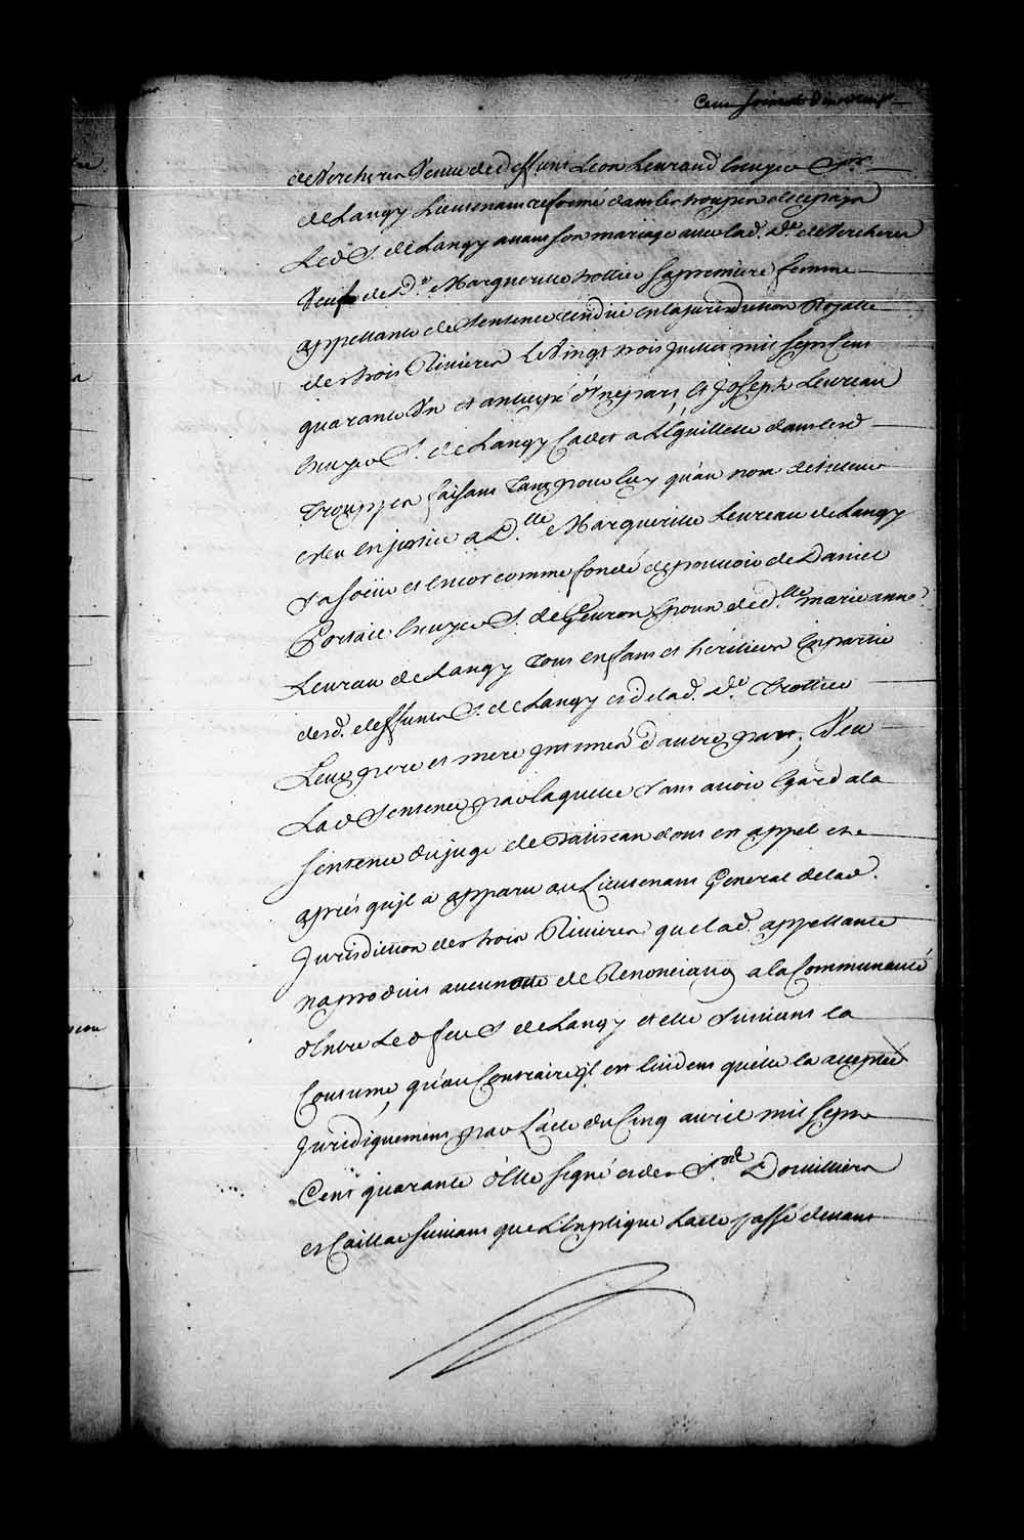 Cent soixante
de Vercheres Veuve de deffunt Leon Levraud Ecuyer Sr.
de Langy Lieutenant reformé dans les trouppes de ce pays
Led S. de Langy avant son mariage avec lad. De. de Vercheres
Veuf de De. Marguerite trottier sa premiere femme
appellante de Sentence rendüe en la jurisdiction Royalle
des trois Rivieres le Vingt trois juillet mil sept Cent
quarante Un et anticipé d'Une part, Et Joseph Levreau
Ecuyer S. de Langy Cadet a L'Eguillette dans lesd
trouppes faisant tant pour luy qu'au nom de tuteur
eleu en justice a Dlle. Marguerite Levreau de Langy
sa soeur et Encor comme fondé de pouvoir de Daniel
Ecuyer S. de Epoux de dlle. marie anne
Levrau de Langy tous enfans et heritiers En partie
desd. deffunts S. de Langy et de lad. De. Trottier
Leurs pere et mere intimés d'autre part; Veu
Lad Sentence par laquelle sans avoir Egard a la
Sentence du juge de Batiscan dont en appel et
aprés qu'il a apparu au Lieutenant General de lad.
Jurisdiction des trois Rivieres que lad. appellante
na produit aucun acte de Renonciation a la Communauté
d'Entre Led feu S. de Langy et elle suivant la
Coutume, qu'au Contraire il est Evident qu'elle la acceptée
Juridiquement par L'acte du Cinq avril mil sept
Cent quarante d'Elle signé et des Srs.
et Caillat suivant que L'Explique Lacte passé devant